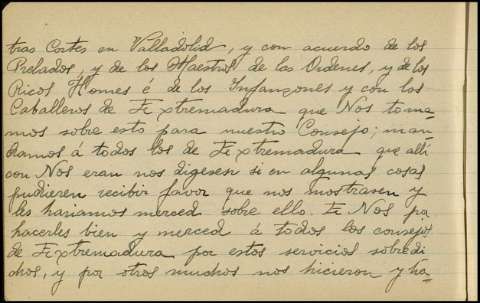 tras Cortes en Valladolid, y con acuerdo de los
Prelados, y de los Maestros de las Ordenes, y de los
Ricos Homes é de los Infanzones y con los
Caballeros de Extremadura que Nos toma-
mos sobre esto para nuestro Consejo; man-
damos á todos los de Extremadura que allí
con Nos eran nos digesen si en algunas cosas
pudieren recibir favor que nos mostrasen y
les hariamos merced sobre ello. E Nos pa
hacerles bien y merced á todos los consejos
de Extremadura por estos servicios sobredi
chos, y por otros muchos nos hicieron y ha-